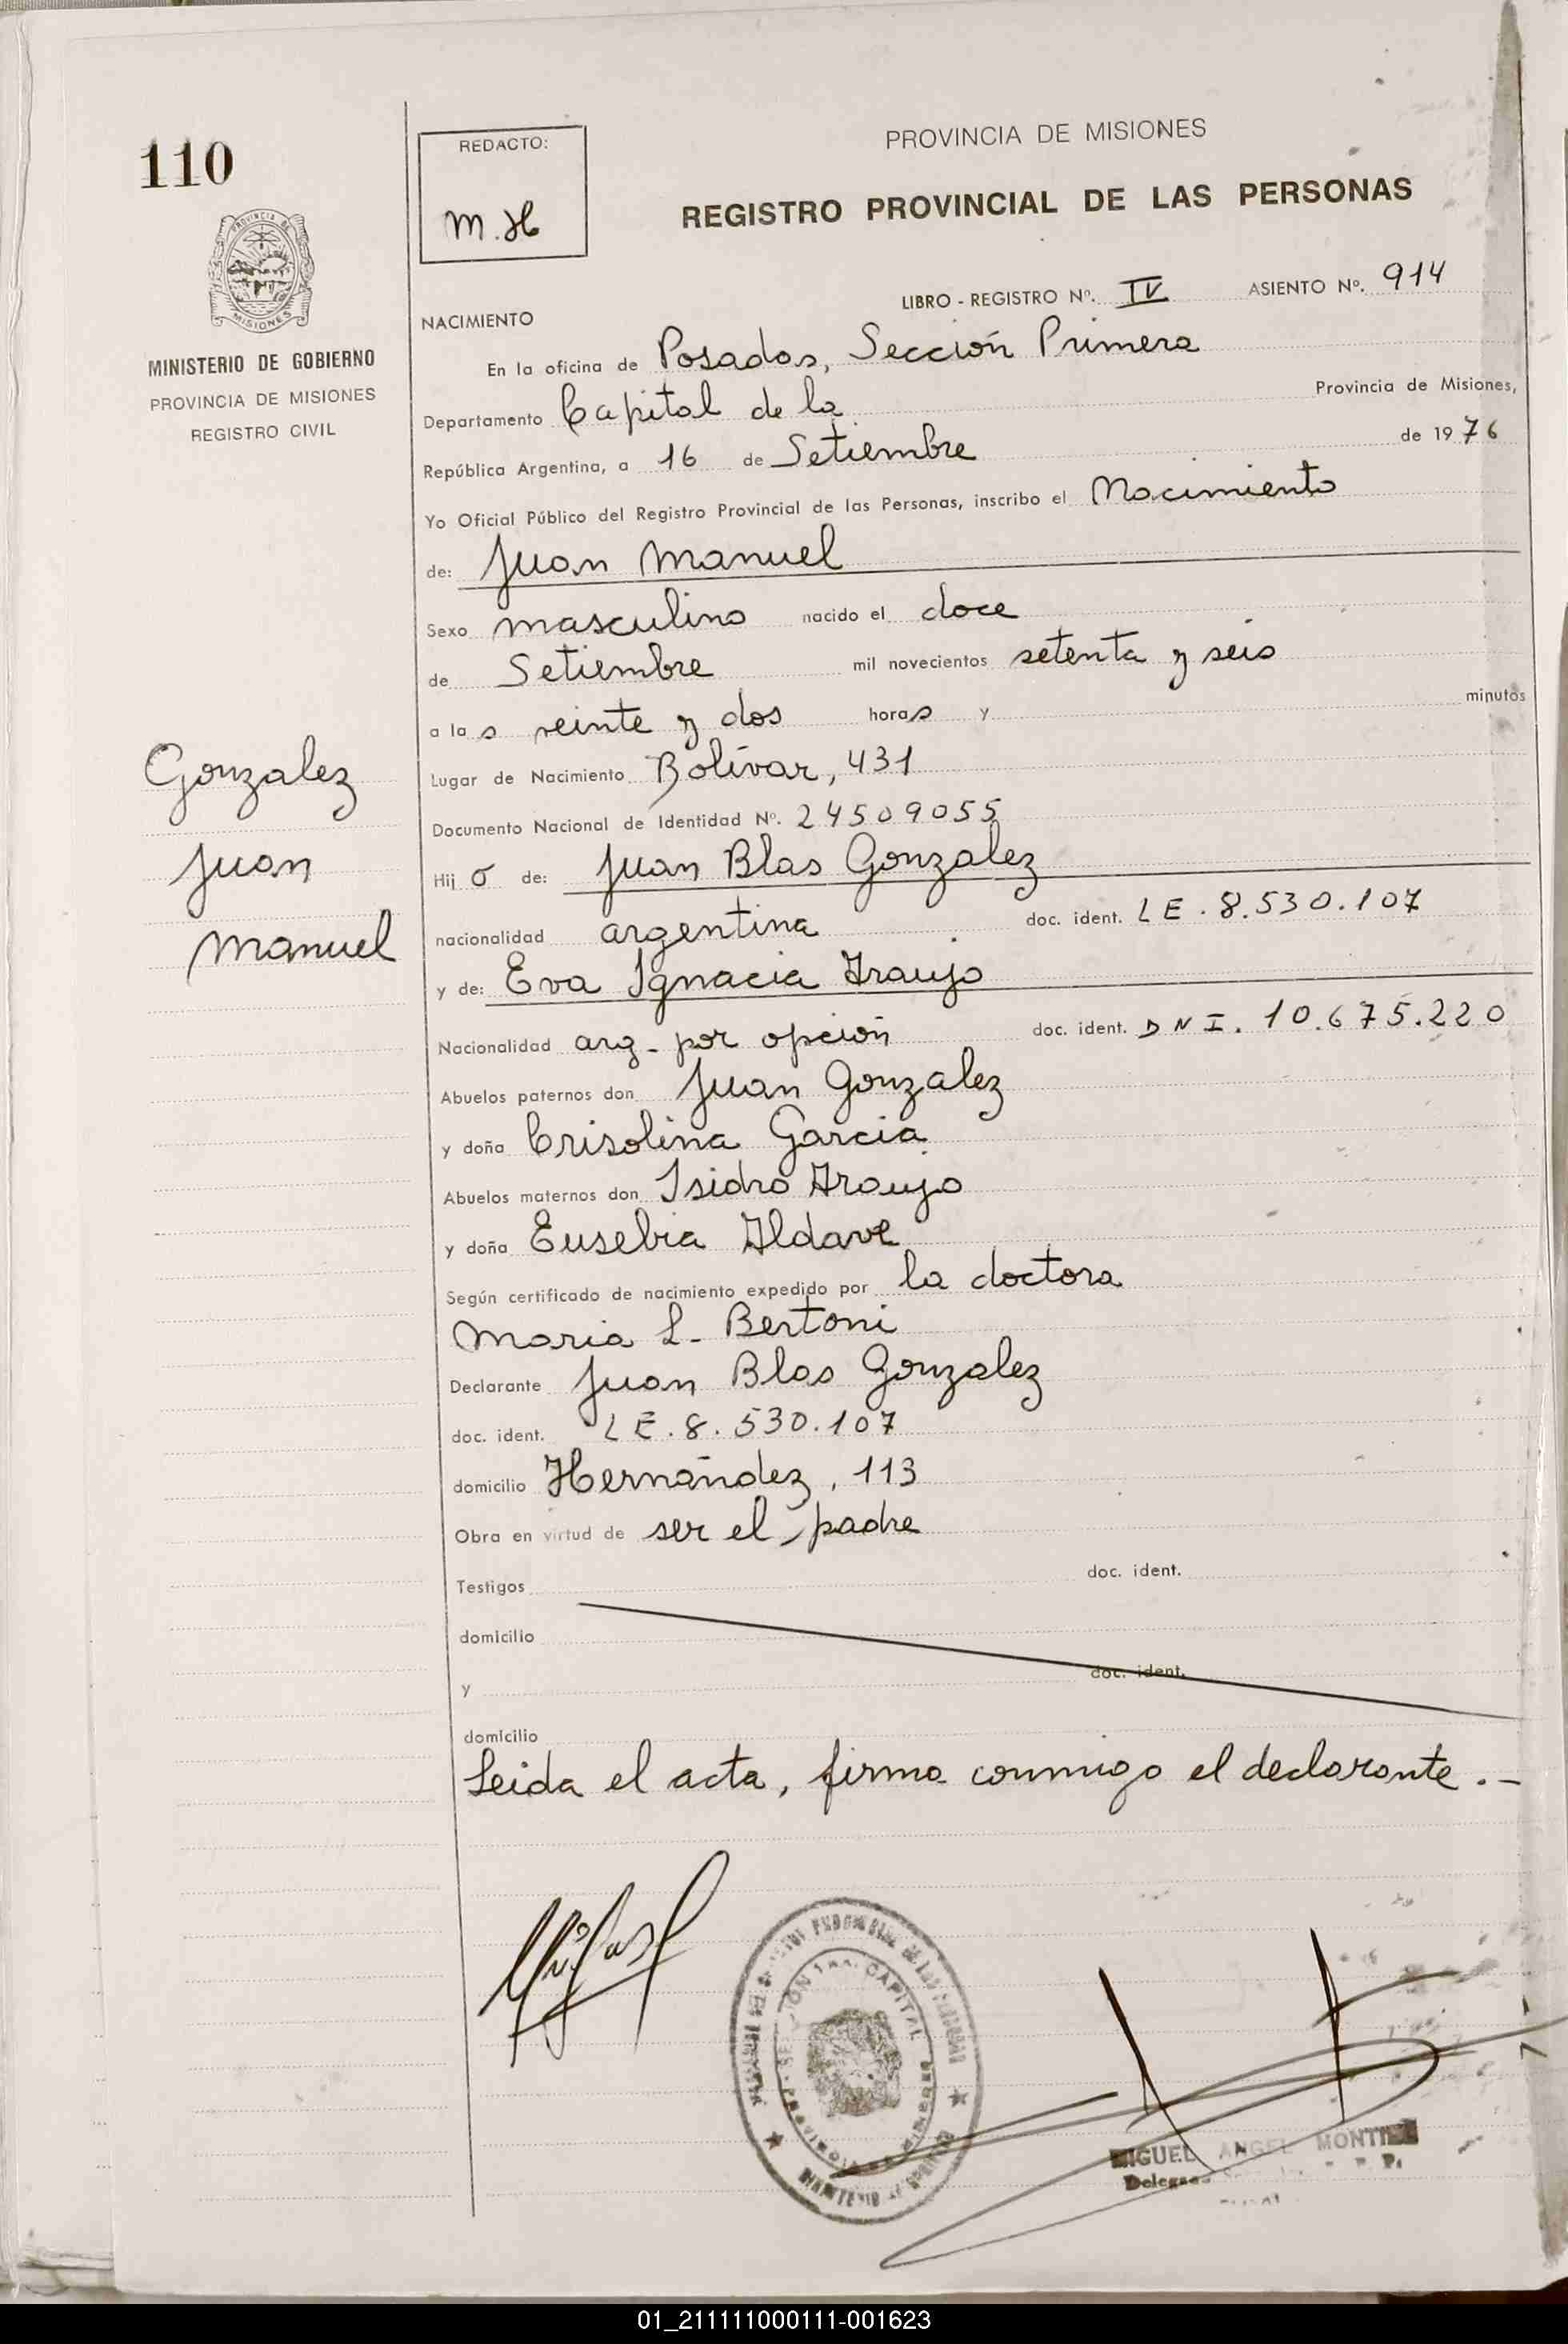 110
REDACTO:
M.H
PROVINCIA DE MISIONES
REGISTRO PROVINCIAL DE LAS PERSONAS
MINISTERIO DE GOBIERNO
PROVINCIA DE MISIONES
REGISTRO CIVIL
LIBRO - REGISTRO Nº. IV ASIENTO Nº. 914
NACIMIENTO
En la oficina de Posadas, Sección Primera
Departamento Capital de la Provincia de Misiones,
República Argentina, a 16 de Setiembre de 1976
Yo Oficial Público del Registro Provincial de las Personas, inscribo el Nacimiento
de: Juan Manuel
Sexo masculino nacido el doce
de Setiembre mil novecientos setenta y seis
a las veinte y dos horas y minutos
Lugar de Nacimiento Bolívar, 431
Documento Nacional de Identidad Nº. 24509055
Hijo de: Juan Blas Gonzalez
nacionalidad argentina doc. ident. LE. 8.530.107
y de: Eva Ignacia Araujo
Nacionalidad arg. por opción doc. ident. DNI. 10.675.220
Abuelos paternos don Juan Gonzalez
y doña Crisolina Garcia
Abuelos maternos don Isidro Araujo
y doña Eusebia Aldave
Según certificado de nacimiento expedido por la doctora
Maria L. Bertoni
Declarante Juan Blas Gonzalez
doc. ident. LE. 8.530.107
domicilio Hernández, 113
Obra en virtud de ser el padre
Testigos doc. ident.
domicilio
y doc. ident.
domicilio
Leida el acta, firma conmigo el declarante.-
Gonzalez
Juan
Manuel
SECCION 1ra. CAPITAL
MIGUEL ANGEL MONTIEL
01_211111000111-001623